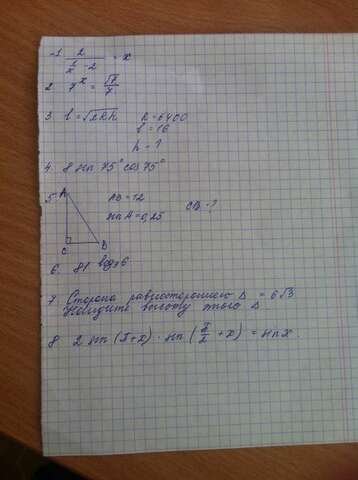 1 2/(5/x - 2) = x
2. 7^x = √7/7
3. l = √2Rh R = 6400
l = 16
h = ?
4. 8 sin 75° cos 75°
5. A AB = 12
sin A = 0,25 CB = ?
C B
6. 81 log₃6
7. Сторона равностороннего Δ = 6√3
Найдите высоту этого Δ
8 2 sin (π+x) · sin (π/2 + x) = sin x